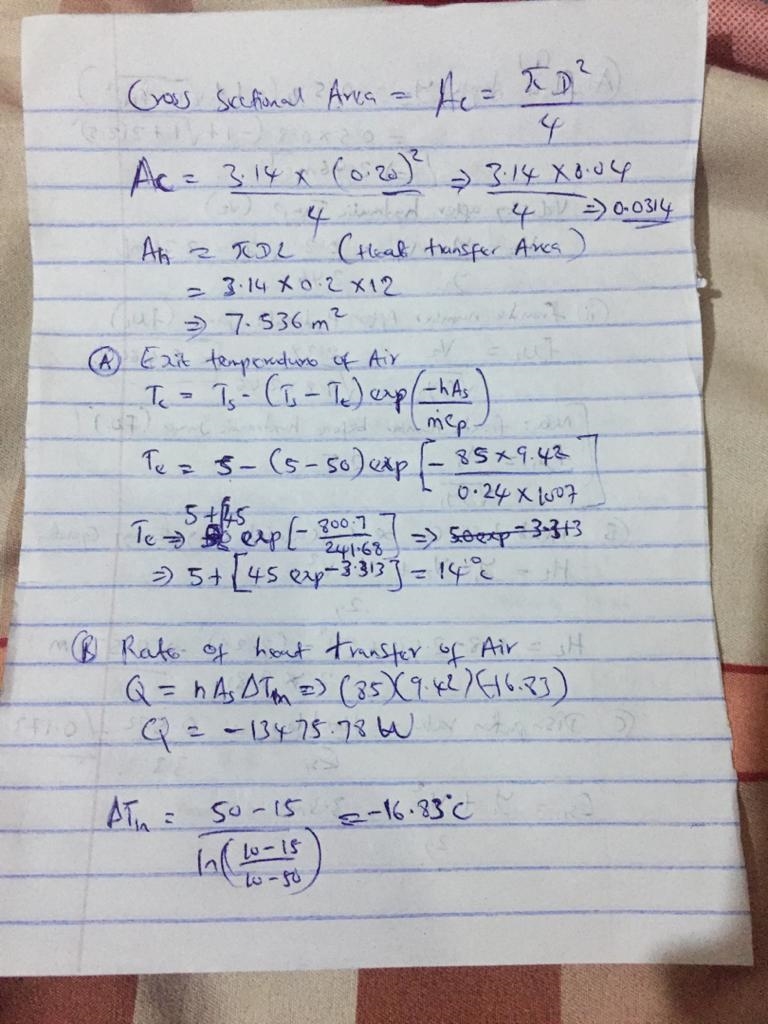 Cross Sectional Area = Ac = πD²/4
Ac = 3.14 x (0.20)²/4 ⇒ 3.14 x 0.04/4 ⇒ 0.0314
Ah = πDL (Heat transfer Area)
= 3.14 x 0.2 x 12
⇒ 7.536 m²
(A) Exit temperature of Air
Te = Ts - (Ts - Te) exp(-hAs/ṁCp)
Te = 5 - (5-50) exp[- 85 x 9.42/0.24 x 1007]
Te ⇒ 5+[45 exp[- 800.7/241.68] ⇒ 50exp-3.313
⇒ 5+[45 exp-3.313] = 14°c
(B) Rate of heat transfer of Air
Q = hAsΔTm ⇒ (85)(9.42)(-16.83)
Q = -13475.78 W
ΔTln = 50-15/ln(10-15/10-50) = -16.83°c